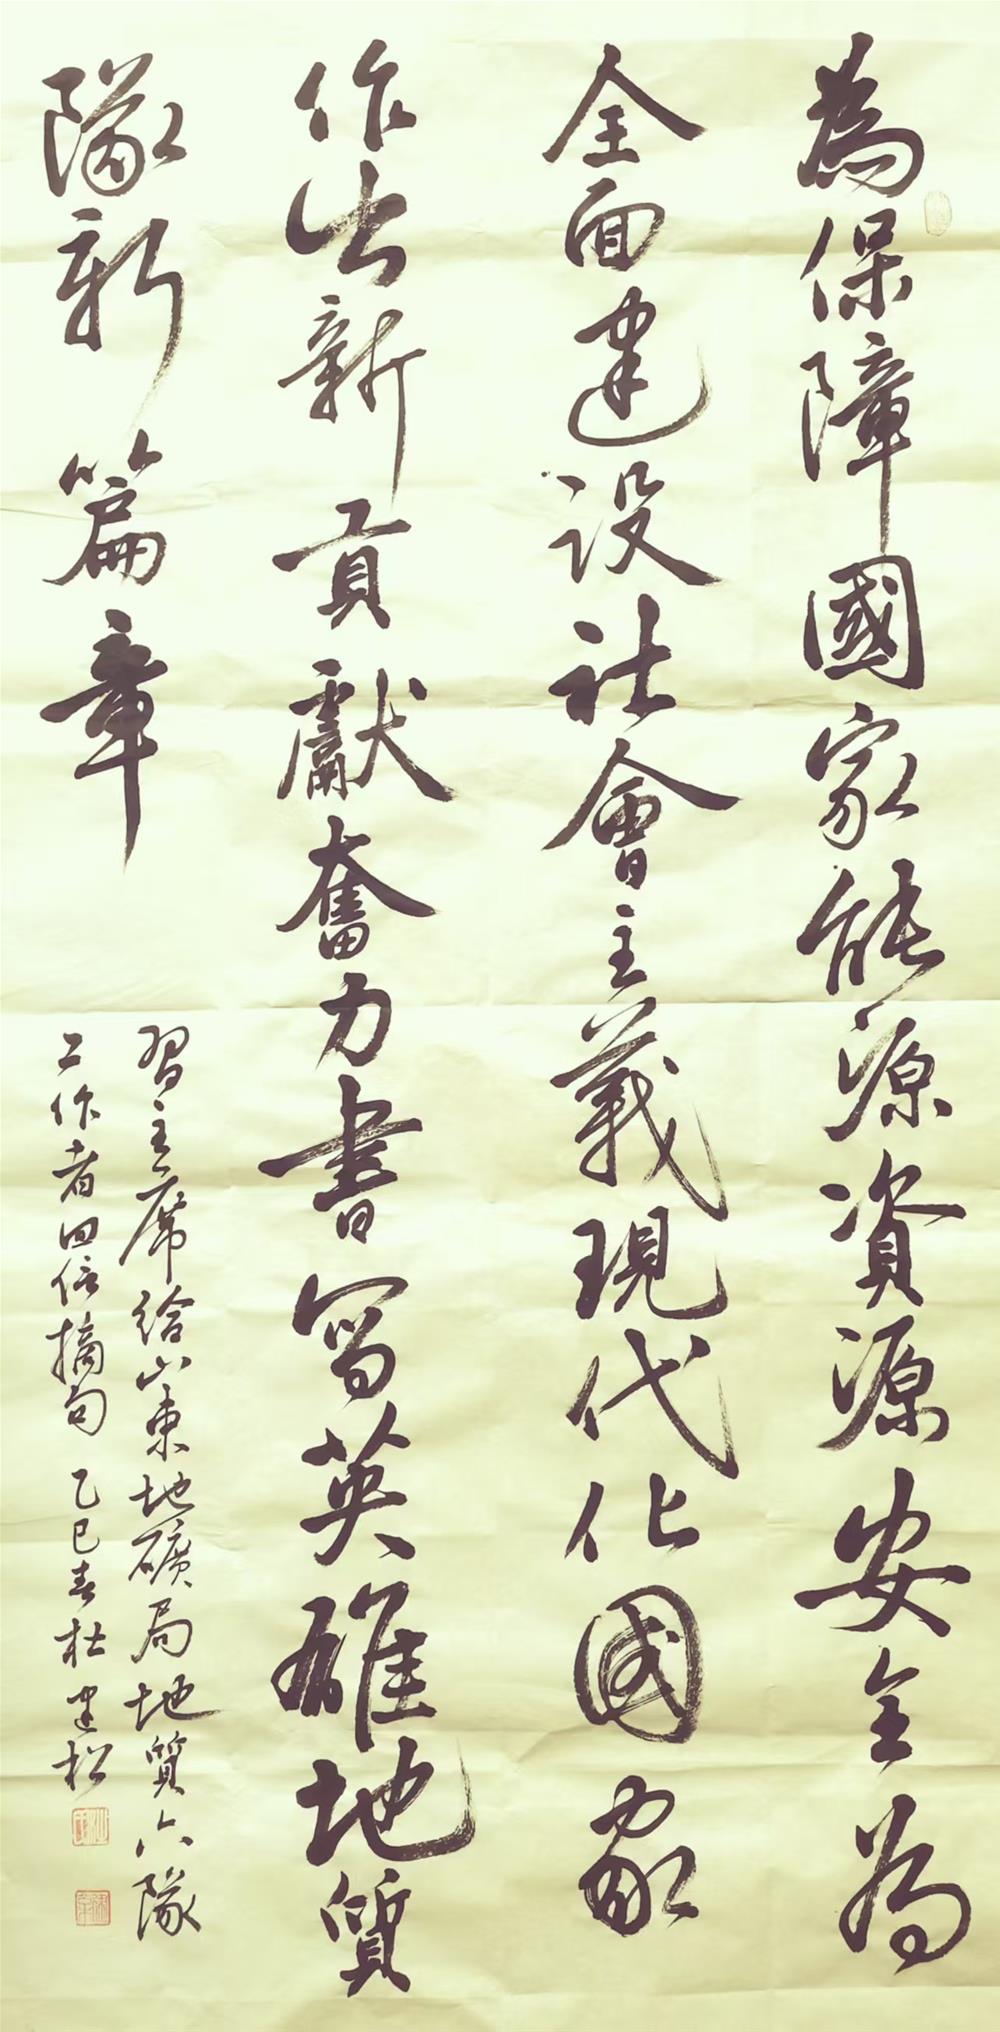 為保障國家能源資源安全為
全面建设社會主義現代化國家
作出新貢獻奮力書写英雄地質
隊新篇章
習主席给山東地礦局地質六隊
工作者回信摘句 乙巳春杜建松